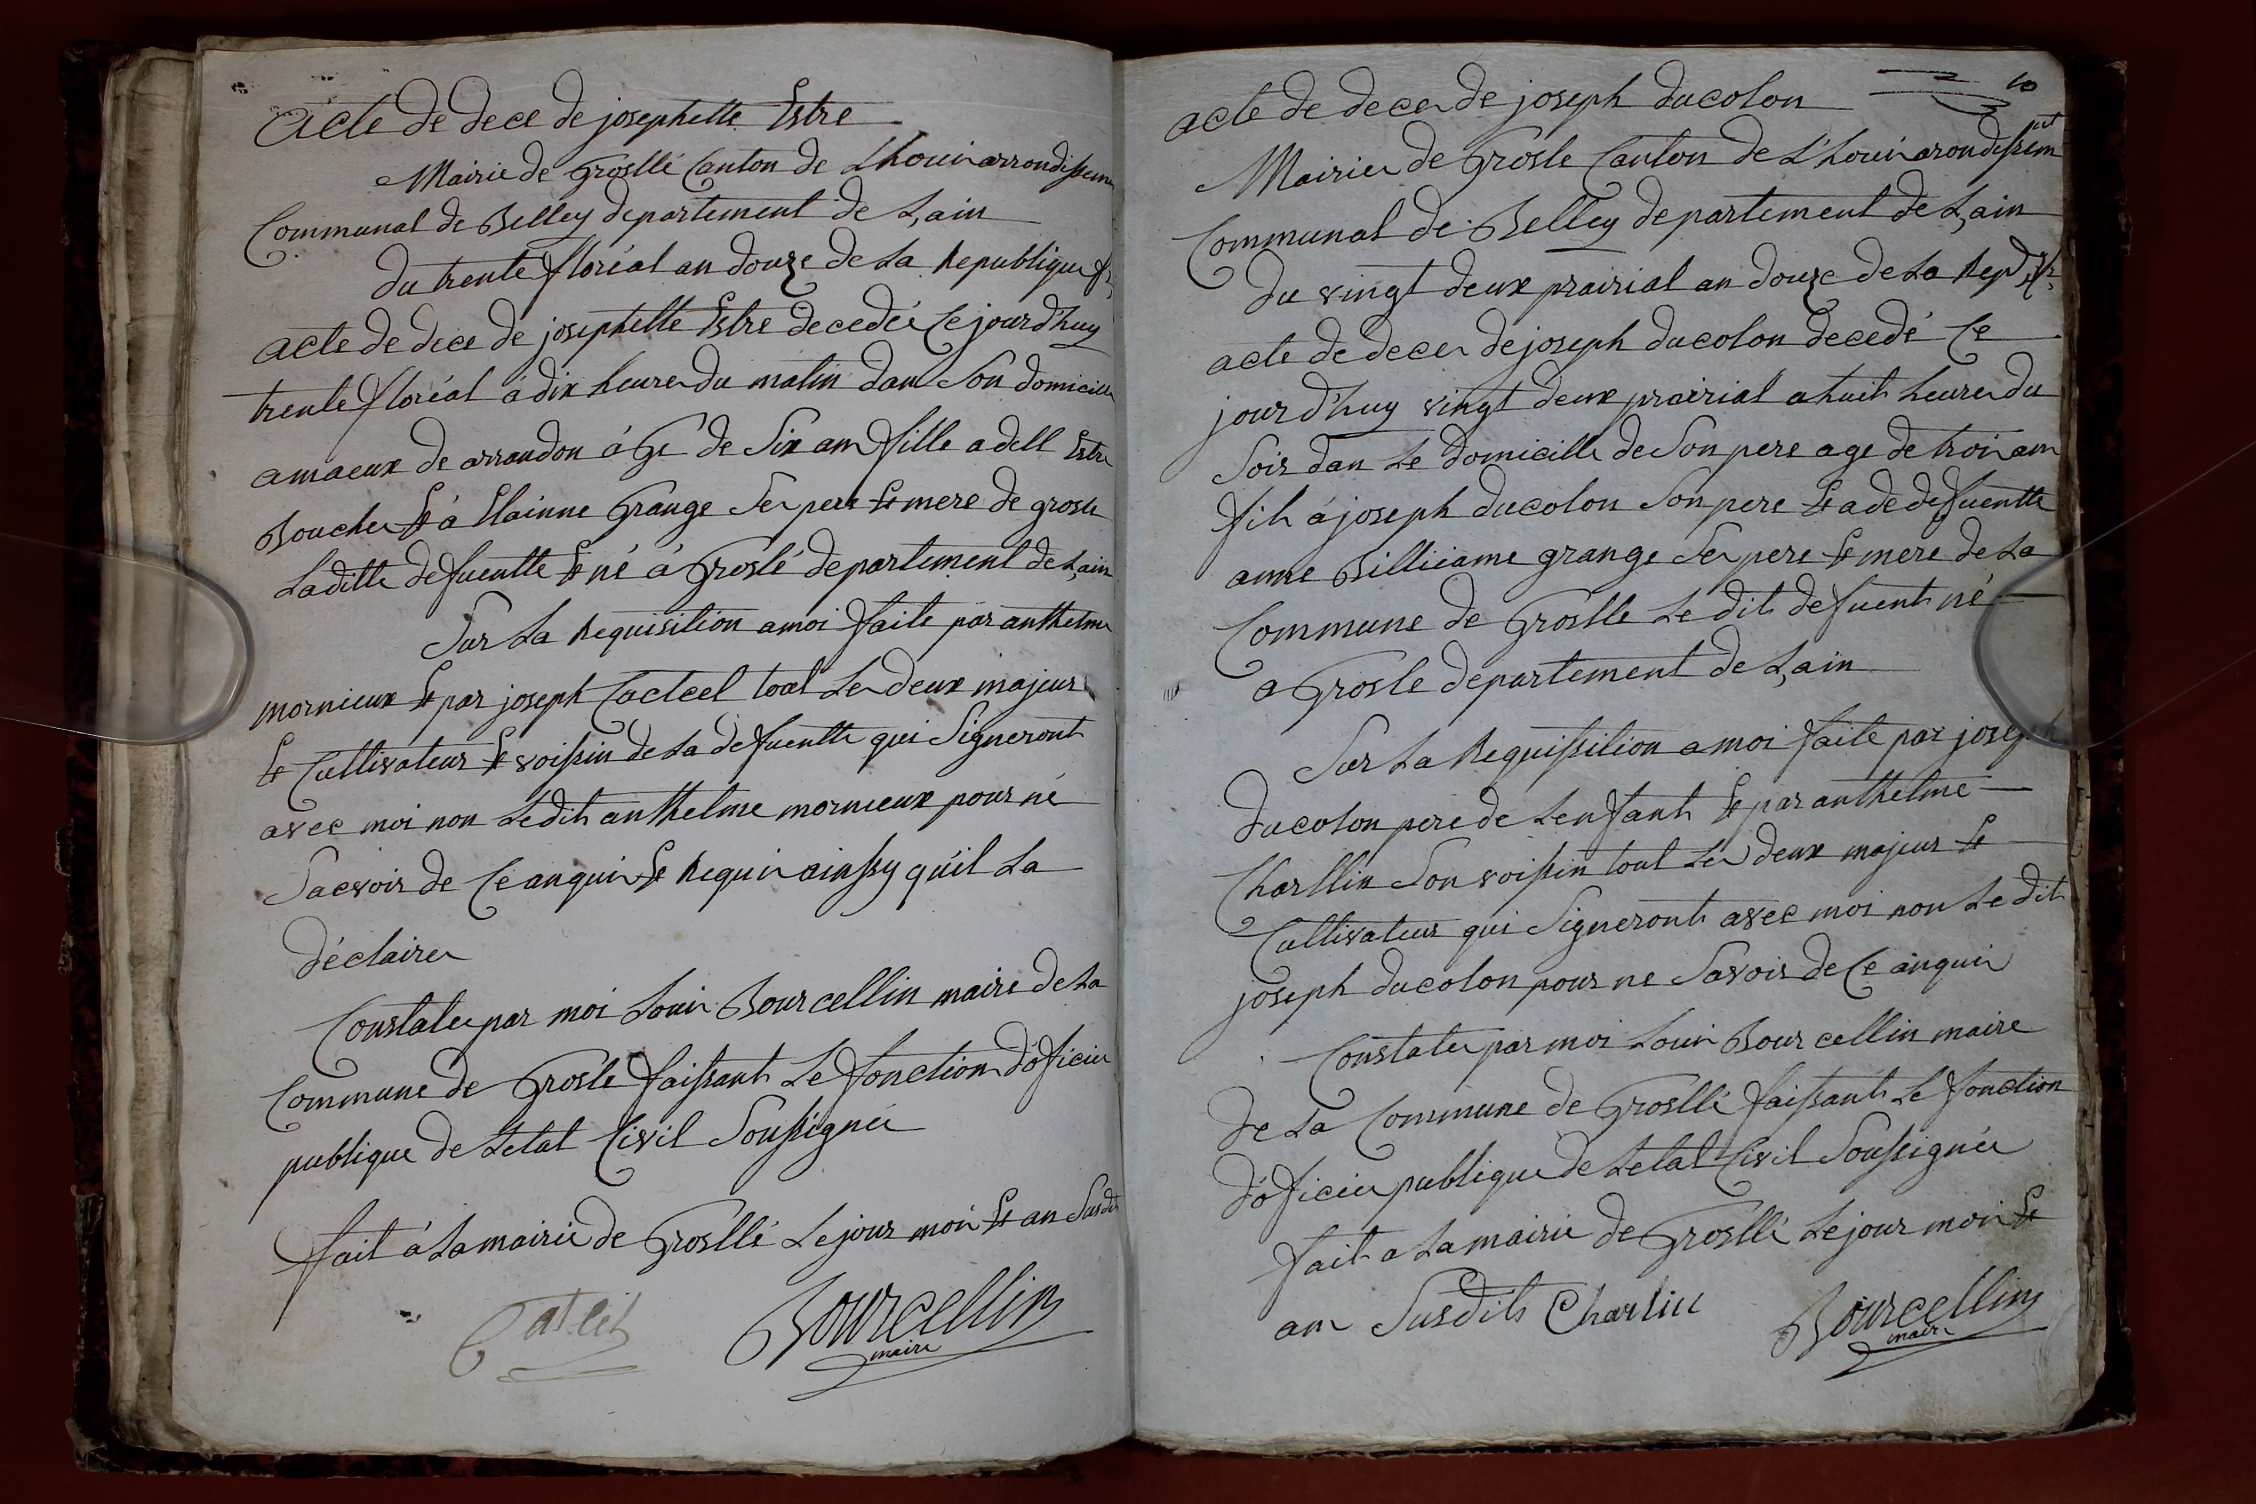 Acte de dece de josephette Estre
Mairie de Groslle Canton de Lhouis arrondissem
Communal de Belley departement de L,ain
du trente floréal an douze de La Republique fr,
acte de dece de josephette Estre decedée Ce jourd'huy
trente floréal á dix heures du matin dans Son domicille
amaeux de arrandon áGé de Six ans fille a dell Estre
Boucher Et á Etainne Grange Ses pere Et mere de grosle
Laditte defuentte Et né á Groslé departement de L,ain
Sur La Requisition a moi faite par anthelme
mornieux Et par joseph Catcel tout Les deux majeur
Et Cultivateur Et voissin de La defuentte qui Signeront
avec moi non Ledit anthelme mornieux pour né
Sacvoir de Ce anquis Et Requis ainssy qu'il La
déclaire
Constater par moi Louis Bourcellin maire de La
Commune de Grosle faissant Le fonction d'oficier
publique de Letat Civil Soussignée
fait á La mairie de Grosllé Le jour mois Et an Susdit
Catcel
Bourcellin
maire
10
acte de deces de joseph ducolon
Mairies de Grosle Canton de L'houis arondissemt
Communal de Belley departement de L,ain
du vingt deux prairial an douze de La Rep fr,
acte de deces de joseph ducolon decedé Ce
jour d'huy vingt deux prairial a huit heures du
Soir dan Le domicille de Son pere age de trois ans
fils á joseph ducolon Son pere Et a de defuentte
anne Billieiame grange Ses pere Et mere de La
Commune de Groslle Le dit defuent né
a Grosle departement de L,ain
Sur La Requissition a moi faite par joseph
ducolon pere de Lenfant Et par anthelme
Charllin Son voissin tout Les deux majeur Et
Cultivateur qui Signeront avec moi non Le dit
joseph ducolon pour ne Savoir de Ce anquis
Constater par moi Louis Bourcellin maire
de La Commune de Grosllé faissant Le fonction
d'oficier publique de Letat Civil Soussignée
fait a La mairie de Grosllé Le jour mois Et
an Susdits Charlin
Bourcellin
maire